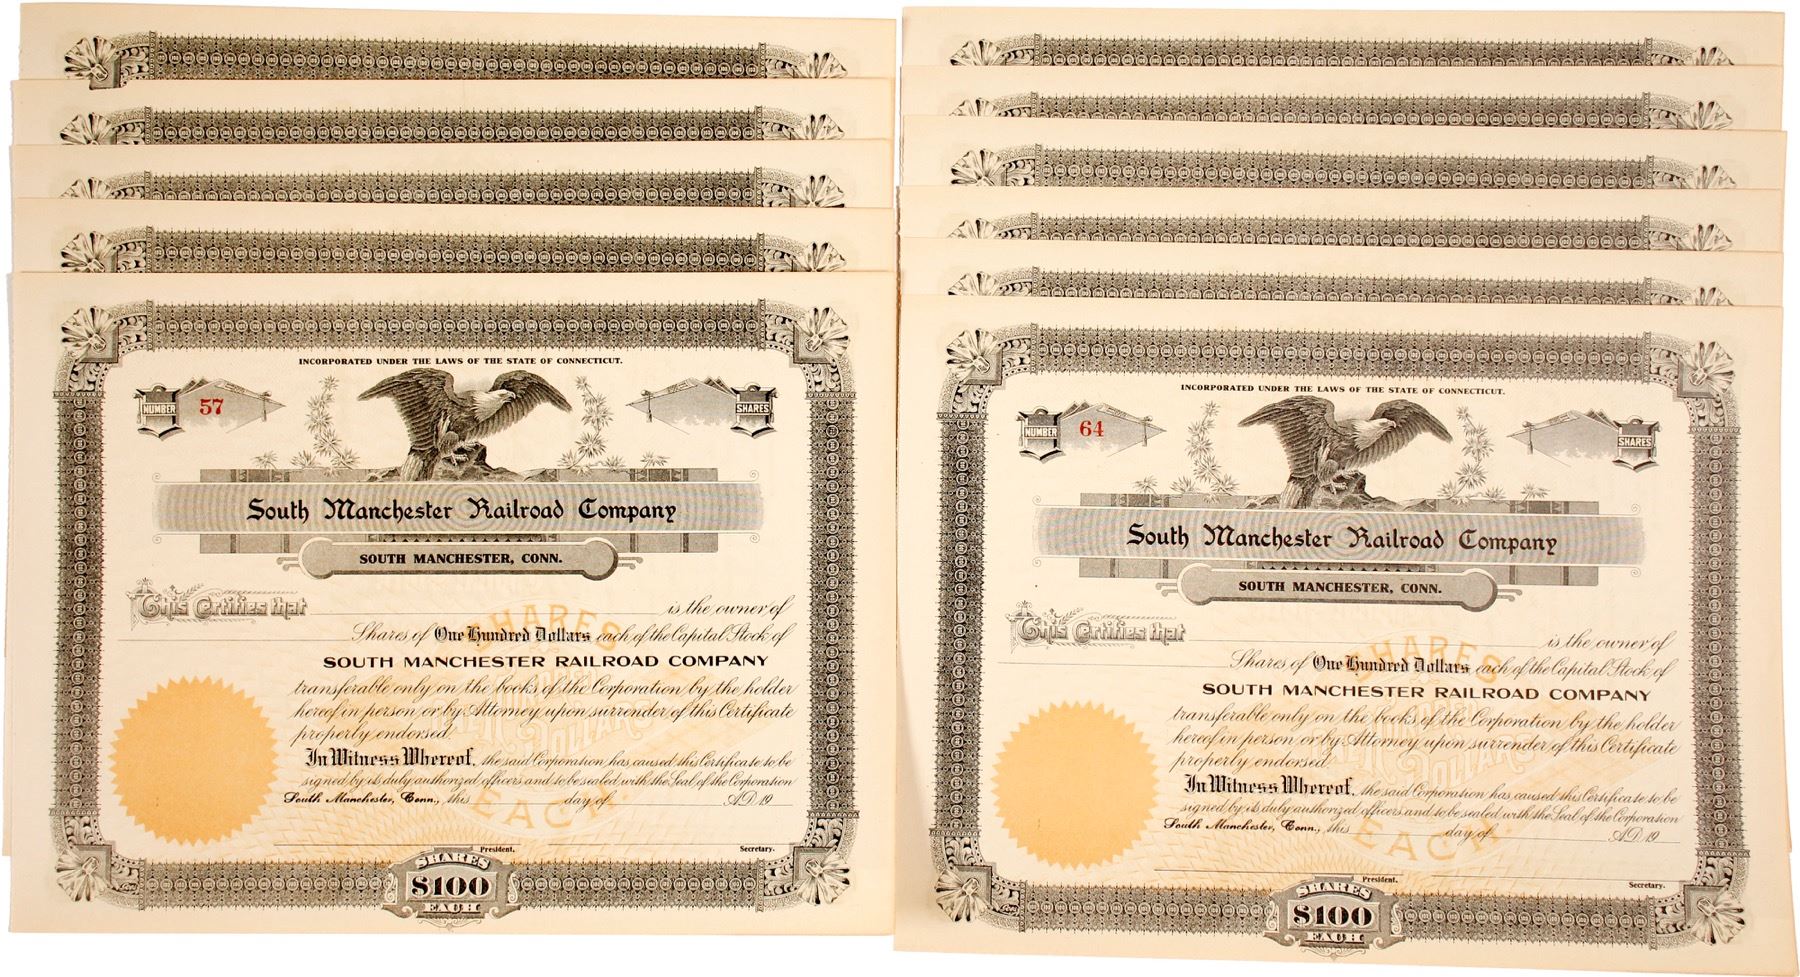 INCORPORATED UNDER THE LAWS OF THE STATE OF CONNECTICUT.
NUMBER 57 SHARES
South Manchester Railroad Company
SOUTH MANCHESTER, CONN.
This Certifies that is the owner of
Shares of One Hundred Dollars each of the Capital Stock of
SOUTH MANCHESTER RAILROAD COMPANY
transferable only on the books of the Corporation by the holder
hereof in person or by Attorney upon surrender of this Certificate
properly endorsed.
In Witness Whereof, the said Corporation has caused this Certificate to be
signed by its duly authorized officers and to be sealed with the Seal of the Corporation
South Manchester, Conn., this day of A.D. 19
President. Secretary.
SHARES
$100
EACH
SHARES
DOLLARS
EACH
INCORPORATED UNDER THE LAWS OF THE STATE OF CONNECTICUT.
NUMBER 64 SHARES
South Manchester Railroad Company
SOUTH MANCHESTER, CONN.
This Certifies that is the owner of
Shares of One Hundred Dollars each of the Capital Stock of
SOUTH MANCHESTER RAILROAD COMPANY
transferable only on the books of the Corporation by the holder
hereof in person or by Attorney upon surrender of this Certificate
properly endorsed.
In Witness Whereof, the said Corporation has caused this Certificate to be
signed by its duly authorized officers and to be sealed with the Seal of the Corporation
South Manchester, Conn., this day of A.D. 19
President. Secretary.
SHARES
$100
EACH
SHARES
DOLLARS
EACH